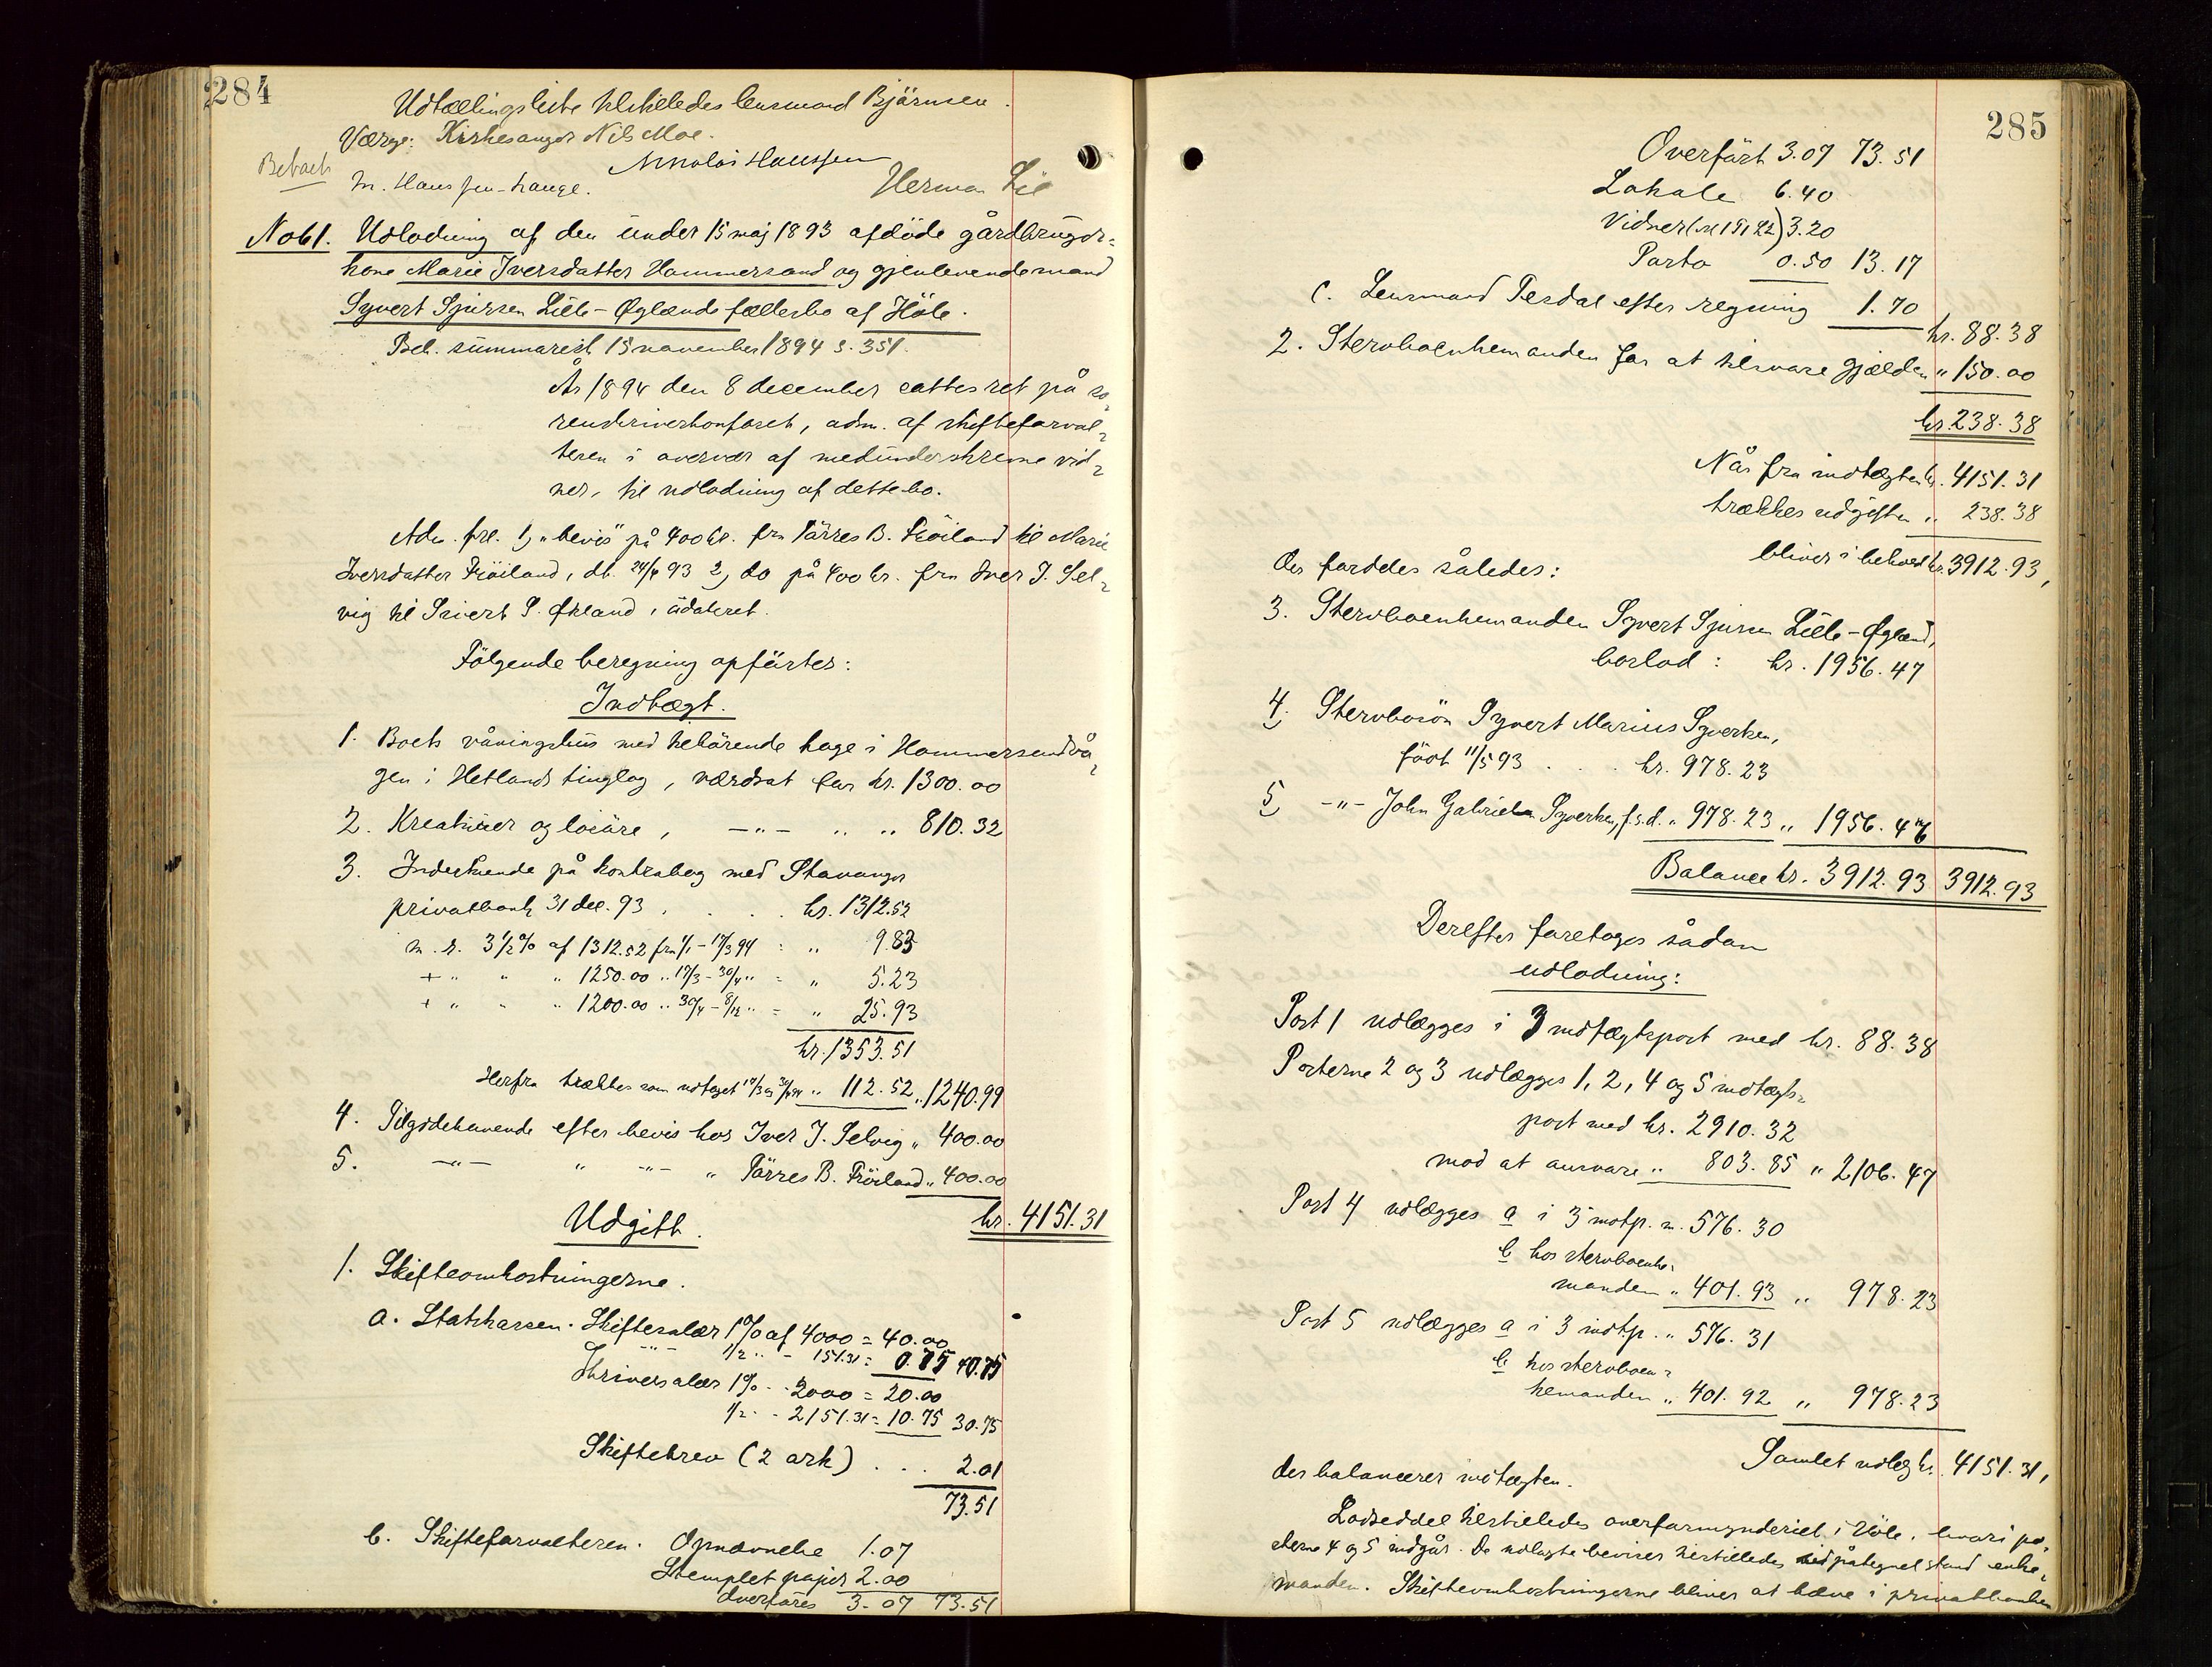 284
Udtællingsliste tilstilledes lensmand Bjårnsen.
Værge: Kirkesanger Nils Moe.
Nikolai Haussen
M. Haussen-hauge.
Herman Lie
No 61. Udlodning af den under 15 maj 1893 afdöde gårdbruger-
kone Marie Iversdatter Hammersand og gjenlevende mand
Syvert Sjursen Lille-Øglænds fællesbo af Höle.
Beh. summarisk 15 november 1894 s. 351.
År 1894 den 8 december sattes ret på so-
renskriverkontoret, adm. af skifteforval-
teren i overvær af medunderskrevne vid-
ner, til udlodning af dette bo.
Adm. frl. 1, "bevis" på 400 kr. fra Tårres B. Fröiland til Marie
Iversdatter Fröiland, dt. 24/4 93 2, do på 400 kr. fra Iver J. Sel-
vig til Sivert S. Økland, udateret.
Fölgende beregning opförtes:
Indtægt.
1. Boets våningshus med tilhörende hage i Hammersandvå-
gen i Hetlands tinglag, værdsat for kr. 1300.00
2. Kreaturer og losöre, -"- " " 810.32
3. Indestående på kontrabog med Stavanger
privatbank 31 dec. 93 . . . kr. 1312.52
m. r. 3½% af 1312.52 fra 1/1 - 17/3 94 = " 9.83
+ " " " 1250.00 " 17/3 - 30/4 " = " 5.23
+ " " " 1200.00 " 30/4 - 8/12 " = " 25.93
kr. 1353.51
Herfra trækkes som udtaget 17/3 og 30/4 94 " 112.52 " 1240.99
4. Tilgodehavende efter bevis hos Iver J. Selvig " 400.00
5. -"- " -"- " Tårres B. Fröiland " 400.00
kr. 4151.31
Udgift.
1. Skifteomkostningerne.
a. Statskassen. Skiftesalær 1% af 4000 = 40.00
-"- 1/2 " - 151.31 = 0.75 40.75
Skriversalær 1% - 2000 = 20.00
1/2 - - 2151.31 = 10.75 30.75
Skiftebrev (2 ark) . . . 2.01
73.51
b. Skifteforvalteren. Opnævnelse 1.07
Stemplet papir 2.00
Overföres 3.07 73.51
285
Overfört 3.07 73.51
Lokale 6.40
Vidner (19, 22) 3.20
Porto 0.50 13.17
c. Lensmand Tesdal efter regning 1.70
kr. 88.38
2. Stervboenkemanden for at tilsvare gjælden " 150.00
kr. 238.38
Når fra indtægten kr. 4151.31
trækkes udgiften " 238.38
bliver i behold kr. 3912.93,
der fordeles således:
3. Stervboenkemanden Syvert Sjursen Lille-Øglænd,
boslod: kr. 1956.47
4. Stervbosön Syvert Marius Syvertsen,
födt 11/5 93 . . . kr. 978.23
5, -"- John Gabriel Syvertsen, f. s. d. " 978.23 " 1956.46
Balance kr. 3912.93 3912.93
Derefter foretoges sådan
udlodning:
Post 1 udlægges i 3 indtægtspost med kr. 88.38
Posterne 2 og 3 udlægges 1, 2, 4 og 5 indtægts-
post med kr. 2910.32
mod at ansvare " 803.85 " 2106.47
Post 4 udlægges a i 3 indtp. m. 576.30
b hos stervboenke-
manden " 401.93 " 978.23
Post 5 udlægges a i 3 indtp. " 576.31
b hos stervboen-
kemanden " 401.92 " 978.23
Samlet udlæg kr. 4151.31,
der balancerer indtægten.
Lodseddel tilstilledes overformynderiet i Höle, hvori po-
sterne 4 og 5 indgår. De udlagte beviser tilstilledes i påtegnet stand enke-
manden. Skifteomkostningerne bliver at hæve i privatbanken